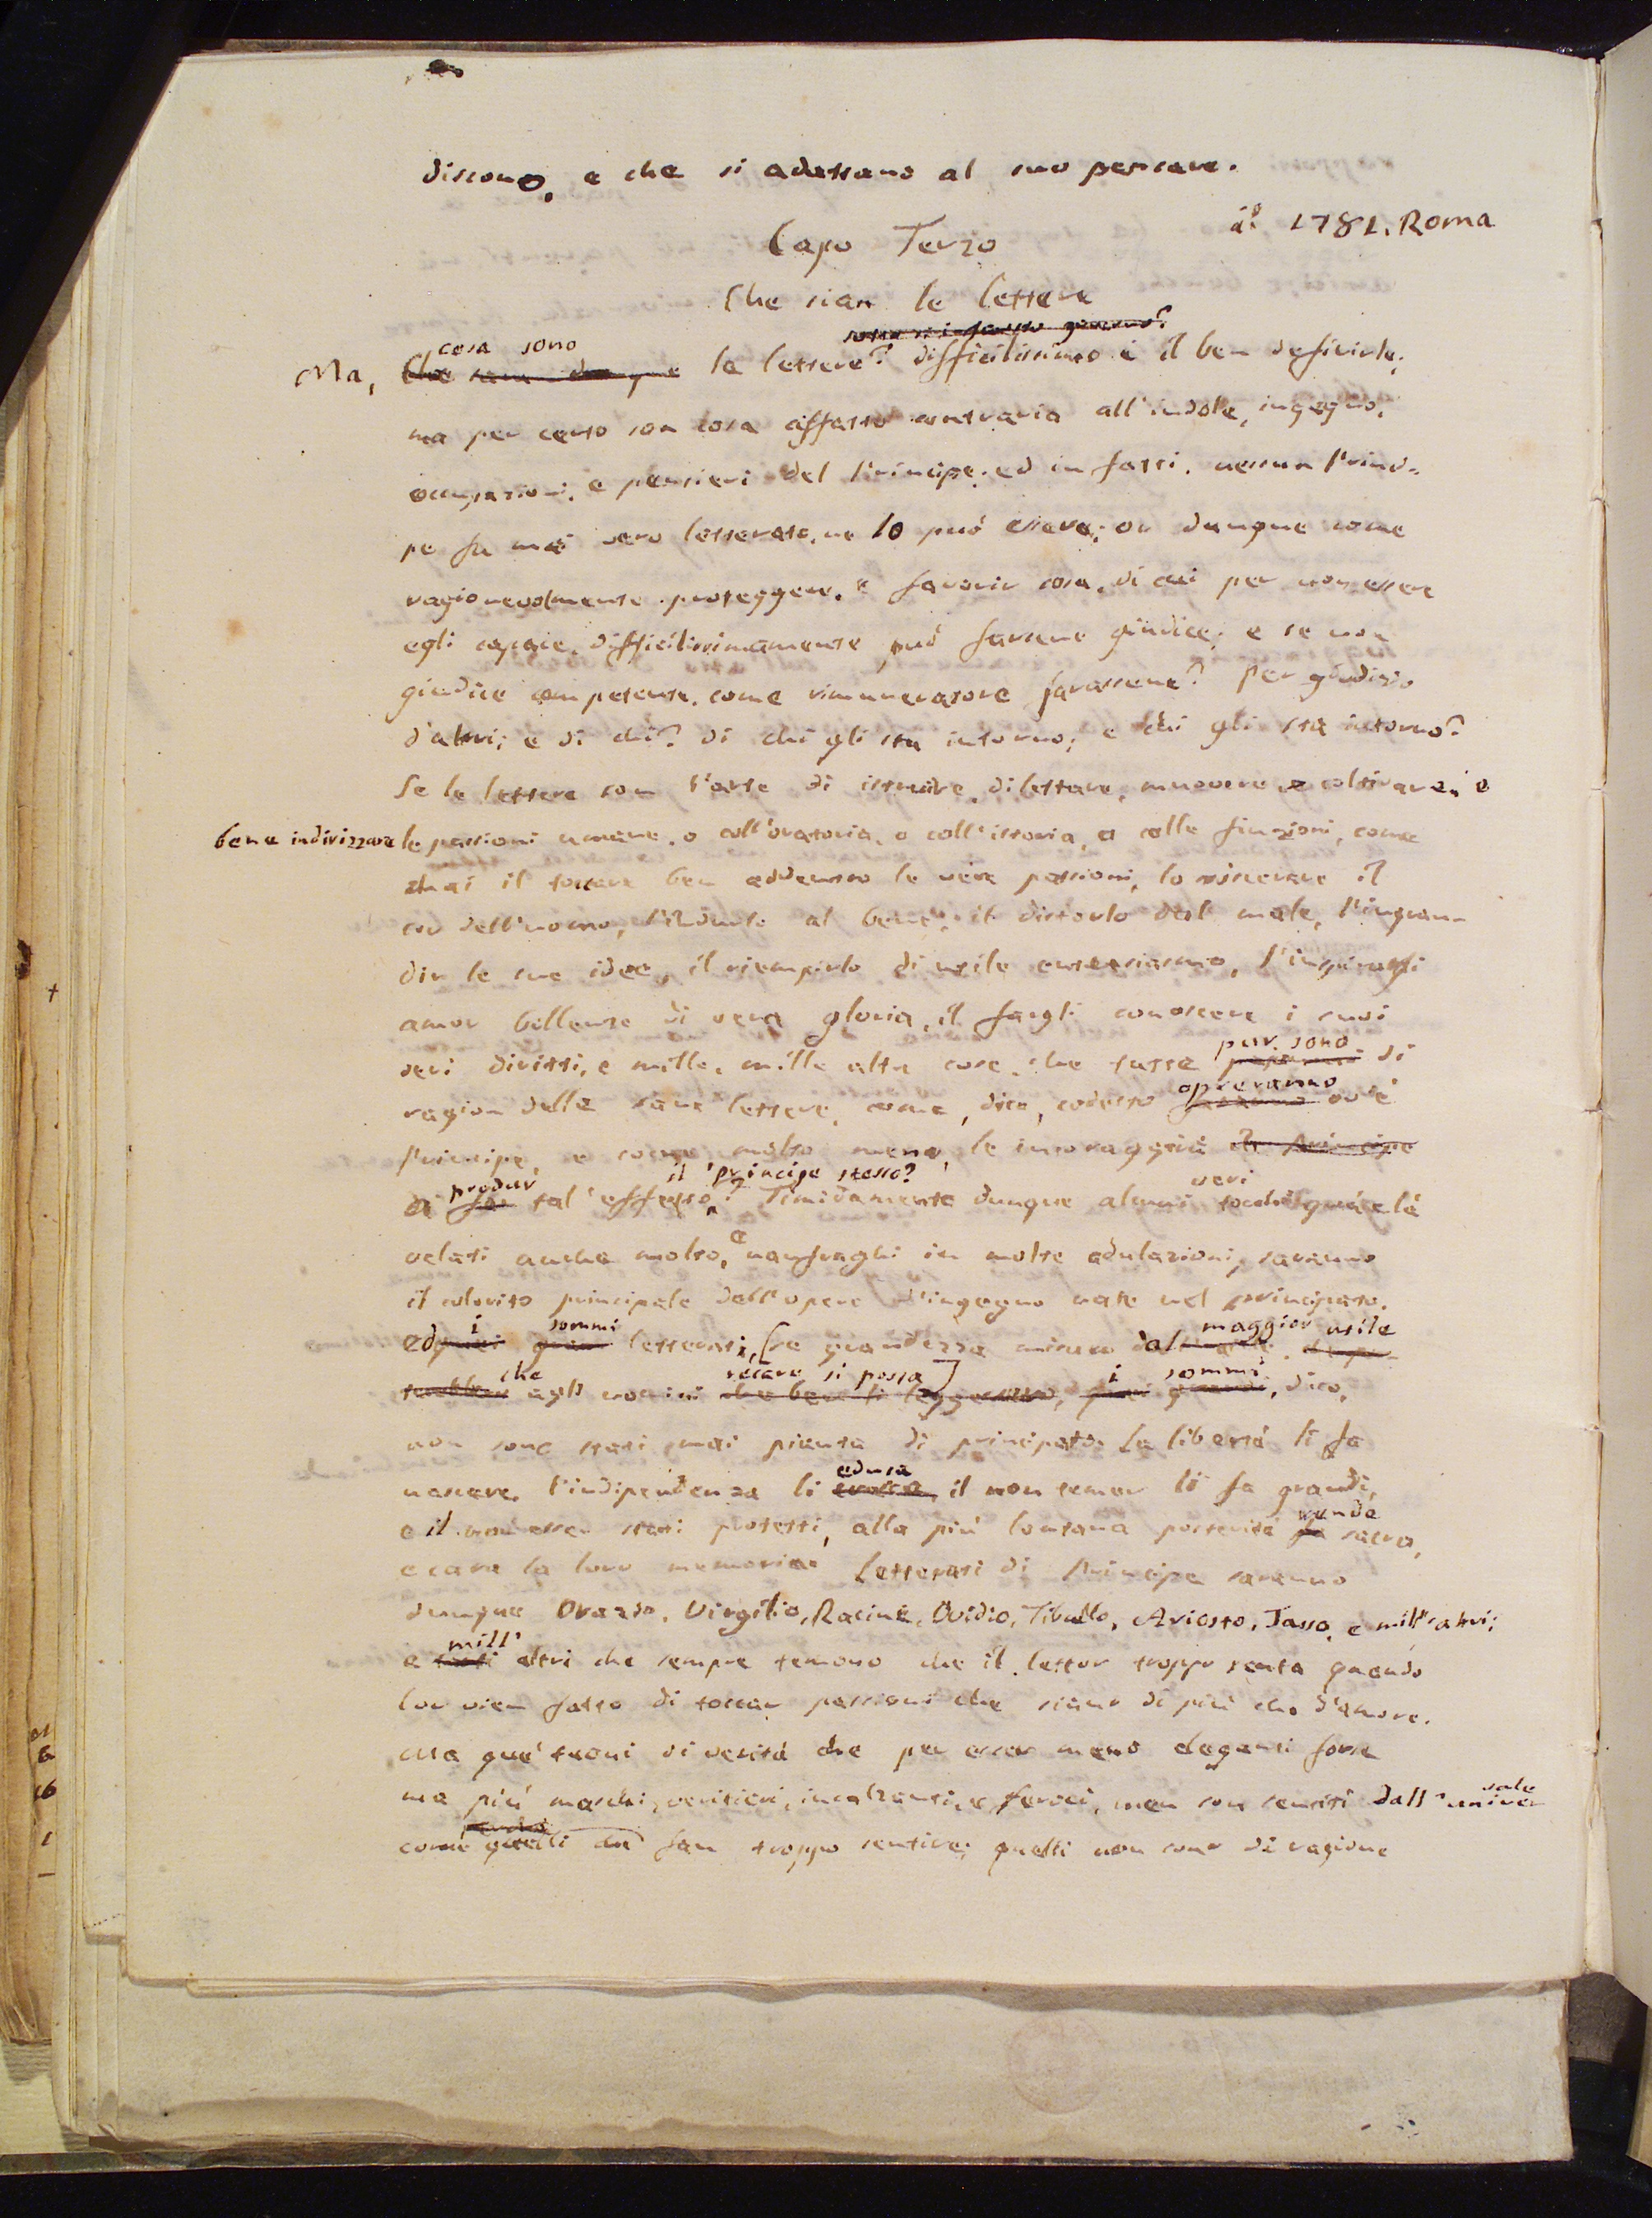 discono, e che si adattano al suo pensare.
1781. Roma
Capo Terzo
Che sian le lettere
Ma, cosa sono le lettere? difficilissimo è il ben definirle;
ma per certo son cosa affatto contraria all'indole, ingegno,
occupazioni, e pensieri del Principe: ed in fatti, nessun Princi-
pe fu mai vero letterato, ne lo può essere; or dunque come
ragionevolmente proteggere, e favorir cosa, di cui per non essere
egli capace, difficilissimamente può farsene giudice; e se non
giudice competente, come rimuneratore farassene? Per giudizio
d'altri; e di chi? di chi gli sta intorno; e chi gli sta intorno?
Se le lettere son l'arte di istruire, dilettare, muovere e coltivare, e
bene indirizzare le passioni umane, o coll'oratoria, o coll'istoria, o colle finzioni, come
mai il toccare ben addentro le vere passioni, lo sviscerare il
cor dell'uomo, l'indurlo al bene, il distorlo dal male, l'ingran-
dir le sue idee, il riempirlo di utile entusiasmo, l'inspirargli
amor bollente di vera gloria, il fargli conoscere i suoi
veri diritti, e mille, mille altre cose, che tutte pur sono di
ragion delle sane lettere, come, dico, codesto opreranno ov'è
Principe, e come molto meno, le incoraggirà il Principe
a produr tal'effetto, il Principe stesso? Timidamente dunque alcuni veri tocchi quà e là
velati anche molto, e naufraghi in molte adulazioni, saranno
il colorito principale dell'opere d'ingegno nate nel principato.
ed i sommi letterati, [se grandezza misuro dal maggior utile
che agli uomini recare si possa] i sommi, dico,
non sono stati mai pianta di principato. La libertà li fa
nascere, l'indipendenza li educa, il non temer li fa grandi,
e il non esser stati protetti, alla più lontana posterità rende sacra,
e cara la loro memoria. Letterati di Principe saranno
dunque Orazio, Virgilio, Racine, Ovidio, Tibullo, Ariosto, Tasso, e mill'altri;
e mill' altri che sempre temono che il lettor troppo senta quando
lor vien fatto di toccar passioni che siano di più che d'amore.
Ma que' tuoni di verità che per esser meno eleganti forse
ma più maschi, veritieri, incalzanti, e feroci, men son sentiti dall'universale
come quelli che fan troppo sentire; quelli non sono di ragione